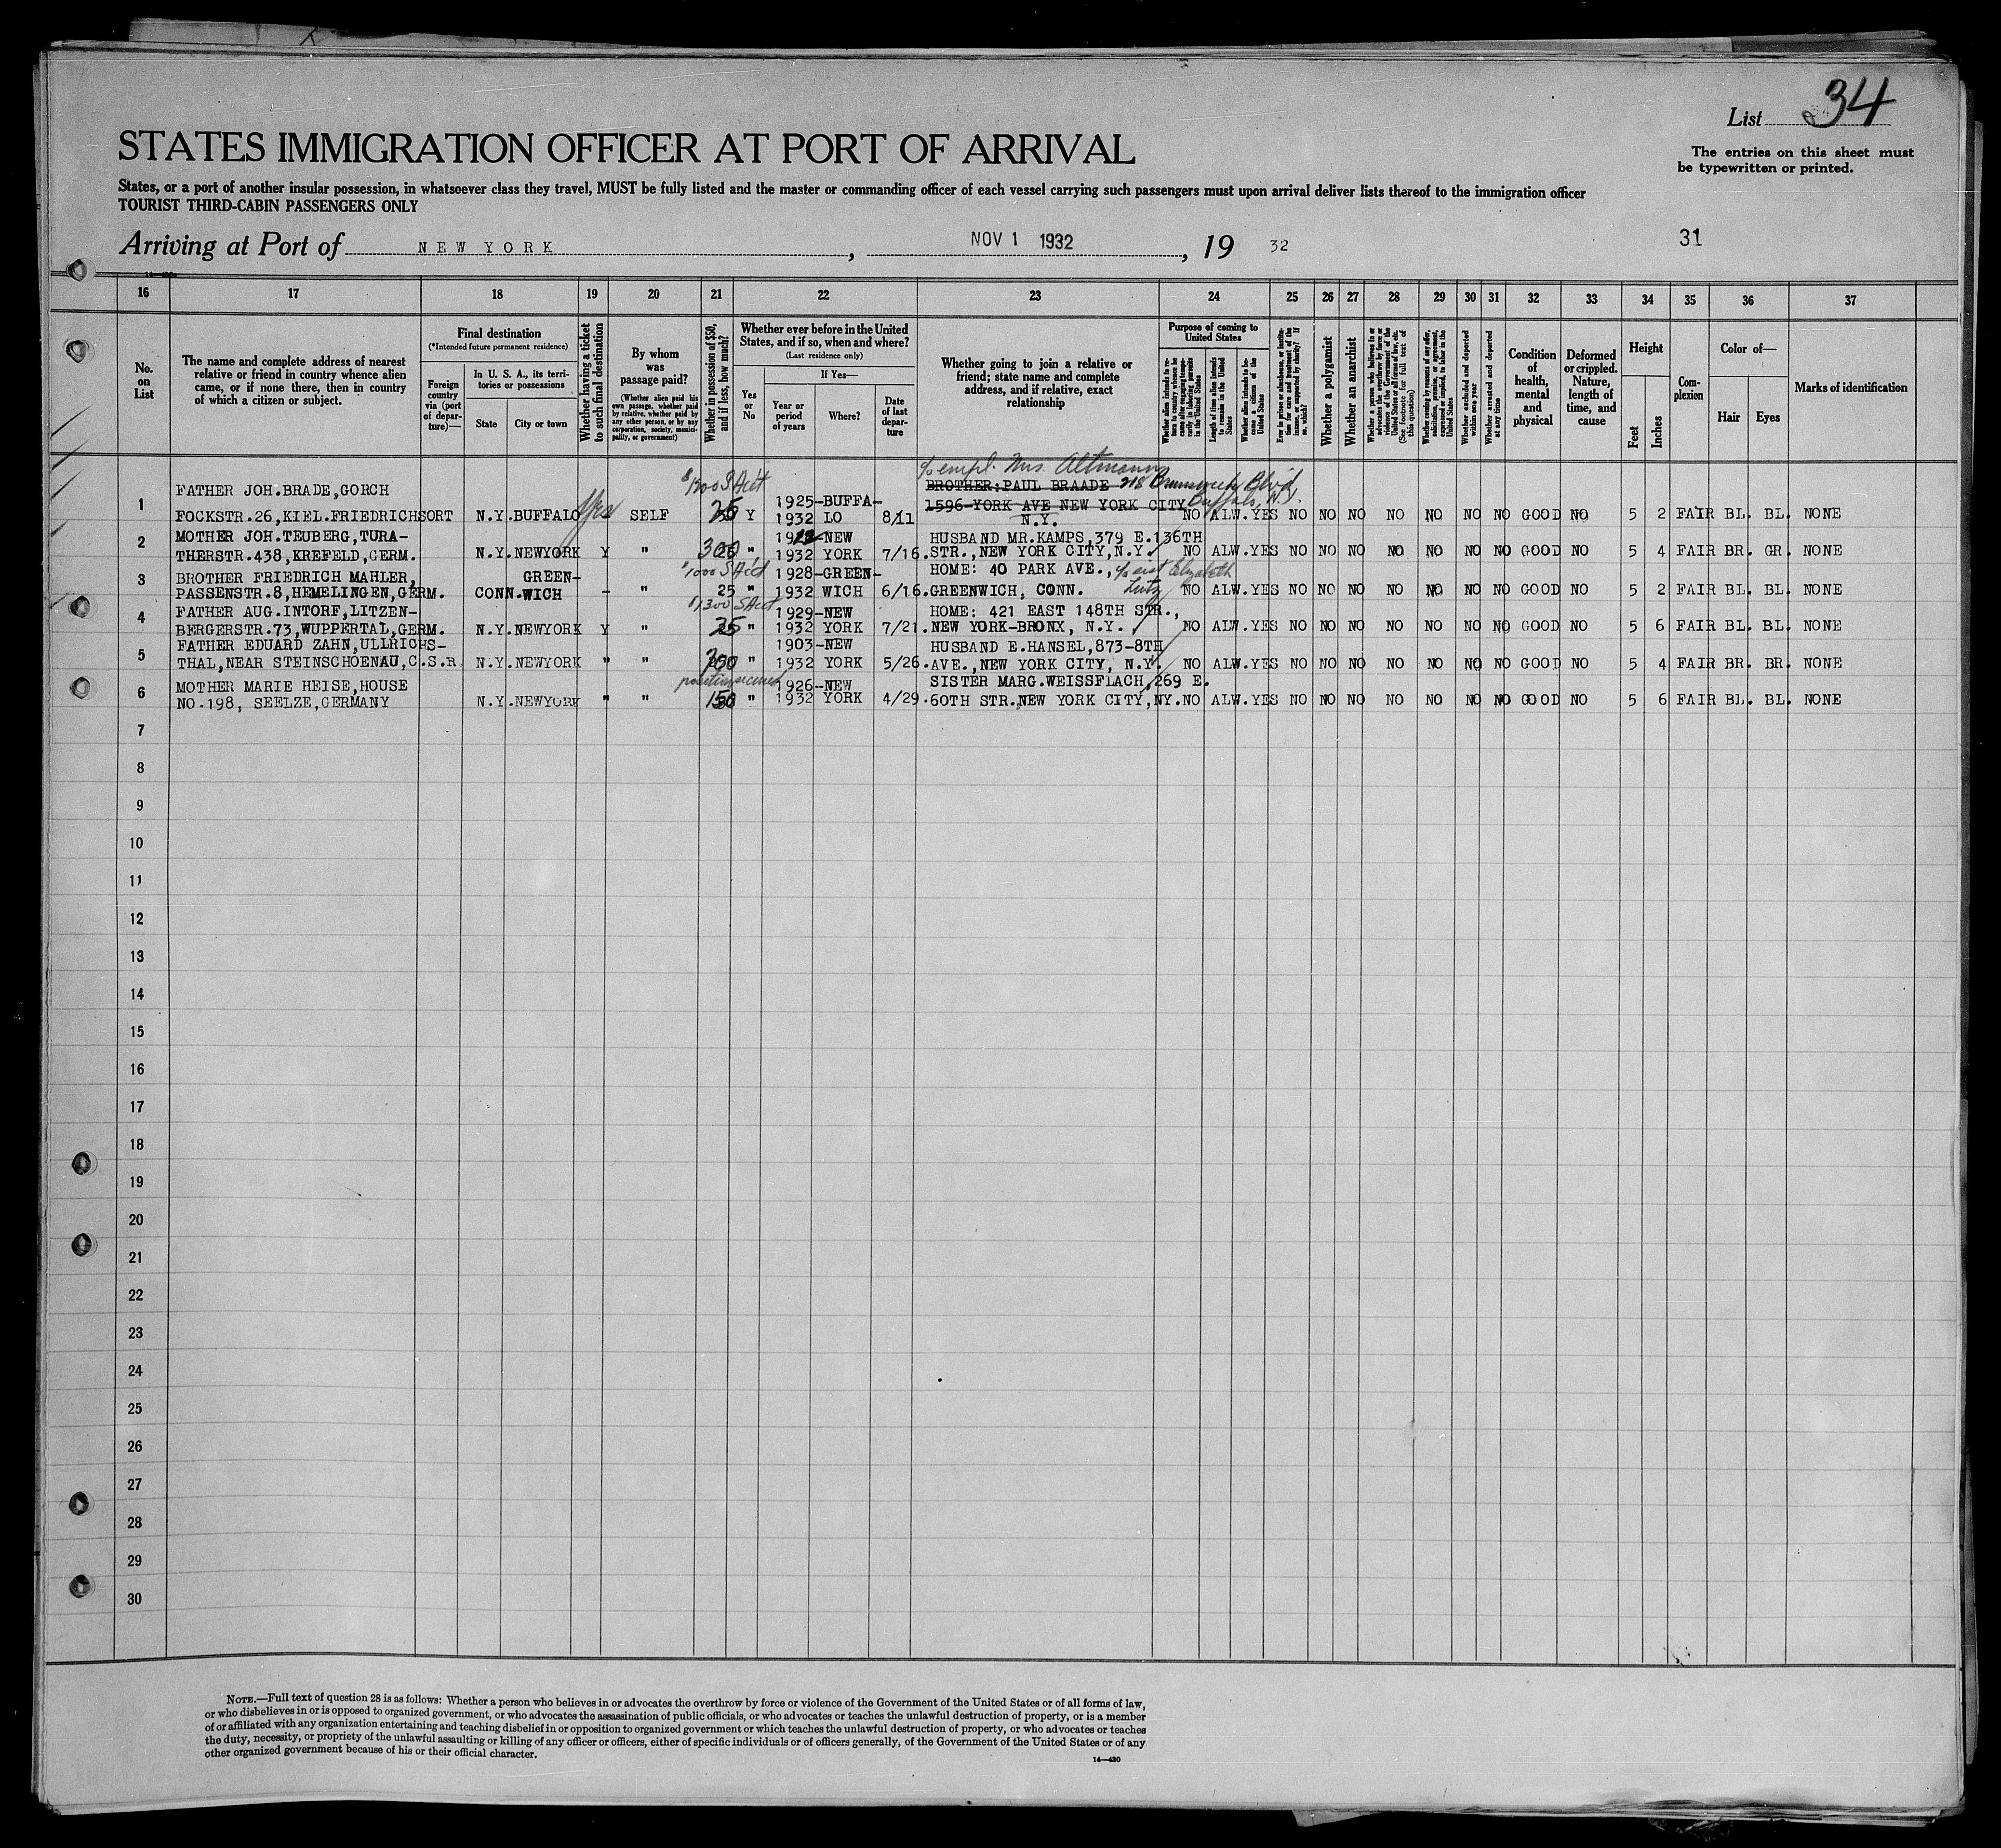 List 34
STATES IMMIGRATION OFFICER AT PORT OF ARRIVAL
The entries on this sheet must
be typewritten or printed.
States, or a port of another insular possession, in whatsoever class they travel, MUST be fully listed and the master or commanding officer of each vessel carrying such passengers must upon arrival deliver lists thereof to the immigration officer
TOURIST THIRD-CABIN PASSENGERS ONLY
Arriving at Port of NEW YORK, NOV 1 1932, 19 32
31
16 17 18 19 20 21 22 23 24 25 26 27 28 29 30 31 32 33 34 35 36 37
No. on List
The name and complete address of nearest
relative or friend in country whence alien
came, or if none there, then in country
of which a citizen or subject.
Final destination
(*Intended future permanent residence)
Foreign country via (port of departure)—
In U. S. A., its territories or possessions
State
City or town
Whether having a ticket to such final destination
By whom was passage paid?
(Whether alien paid his own passage, whether paid by relative, whether paid by any other person, or by any corporation, society, municipality, or government)
Whether in possession of $50, and if less, how much?
Whether ever before in the United
States, and if so, when and where?
(Last residence only)
Yes or No
If Yes—
Year or period of years
Where?
Date of last departure
Whether going to join a relative or
friend; state name and complete
address, and if relative, exact
relationship
Purpose of coming to United States
Whether alien intends to return to country whence he came after engaging temporarily in laboring pursuits in the United States
Length of time alien intends to remain in the United States
Whether alien intends to become a citizen of the United States
Ever in prison or almshouse, or institution for care and treatment of the insane, or supported by charity? If so, which?
Whether a polygamist
Whether an anarchist
Whether a person who believes in or advocates the overthrow by force or violence of the Government of the United States or all forms of law, etc. (See footnote for full text of this question)
Whether coming by reasons of any offer, solicitation, promise, or agreement, expressed or implied, to labor in the United States
Whether excluded and deported within one year
Whether arrested and deported at any time
Condition of health, mental and physical
Deformed or crippled. Nature, length of time, and cause
Height
Feet
Inches
Complexion
Color of—
Hair
Eyes
Marks of identification
c/o empl. Mrs. Altmann
$1200 S Acct
1 FATHER JOH.BRADE,GORCH BROTHER:PAUL BRAADE 218 Brunswick Blvd
1925-BUFFA- 1596-YORK AVE NEW YORK CITY Buffalo, N.Y.
FOCKSTR.26,KIEL.FRIEDRICHSORT N.Y. BUFFALO Yes SELF 25 Y 1932 LO 8/11 N.Y. NO ALW. YES NO NO NO NO NO NO NO GOOD NO 5 2 FAIR BL. BL. NONE
2 MOTHER JOH.TEUBERG,TURA- NEW HUSBAND MR.KAMPS,379 E.136TH
THERSTR.438,KREFELD,GERM. N.Y. NEWYORK Y " 300 " 1932 YORK 7/16. STR.,NEW YORK CITY,N.Y. NO ALW. YES NO NO NO NO NO NO NO GOOD NO 5 4 FAIR BR. GR. NONE
3 BROTHER FRIEDRICH MAHLER, GREEN- $1000 S Acct 1928-GREEN- HOME: 40 PARK AVE., c/o sist Elizabeth
PASSENSTR.8,HEMELINGEN,GERM. CONN. WICH - " 25 " 1932 WICH 6/16. GREENWICH, CONN. Lutz NO ALW. YES NO NO NO NO NO NO NO GOOD NO 5 2 FAIR BL. BL. NONE
4 FATHER AUG.INTORF,LITZEN- $1300 S Acct 1929-NEW HOME: 421 EAST 148TH STR.,
BERGERSTR.73,WUPPERTAL,GERM. N.Y. NEWYORK Y " 35 " 1932 YORK 7/21. NEW YORK-BRONX, N.Y. NO ALW. YES NO NO NO NO NO NO NO GOOD NO 5 6 FAIR BL. BL. NONE
5 FATHER EDUARD ZAHN,ULLRICHS- 1903-NEW HUSBAND E.HANSEL,873-8TH
THAL,NEAR STEINSCHOENAU,C.S.R. N.Y. NEWYORK " " " 1932 YORK 5/26. AVE.,NEW YORK CITY, N.Y. NO ALW. YES NO NO NO NO NO NO NO GOOD NO 5 4 FAIR BR. BR. NONE
6 MOTHER MARIE HEISE,HOUSE 1926-NEW SISTER MARG.WEISSFLACH,269 E.
NO.198, SEELZE,GERMANY N.Y. NEWYORK " " 150 " 1932 YORK 4/29. 60TH STR.,NEW YORK CITY,NY. NO ALW. YES NO NO NO NO NO NO NO GOOD NO 5 6 FAIR BL. BL. NONE
7
8
9
10
11
12
13
14
15
16
17
18
19
20
21
22
23
24
25
26
27
28
29
30
NOTE.—Full text of question 28 is as follows: Whether a person who believes in or advocates the overthrow by force or violence of the Government of the United States or of all forms of law,
or who disbelieves in or is opposed to organized government, or who advocates the assassination of public officials, or who advocates or teaches the unlawful destruction of property, or is a member
of or affiliated with any organization entertaining and teaching disbelief in or opposition to organized government or which teaches the unlawful destruction of property, or who advocates or teaches
the duty, necessity, or propriety of the unlawful assaulting or killing of any officer or officers, either of specific individuals or of officers generally, of the Government of the United States or of any
other organized government because of his or their official character.
14—430